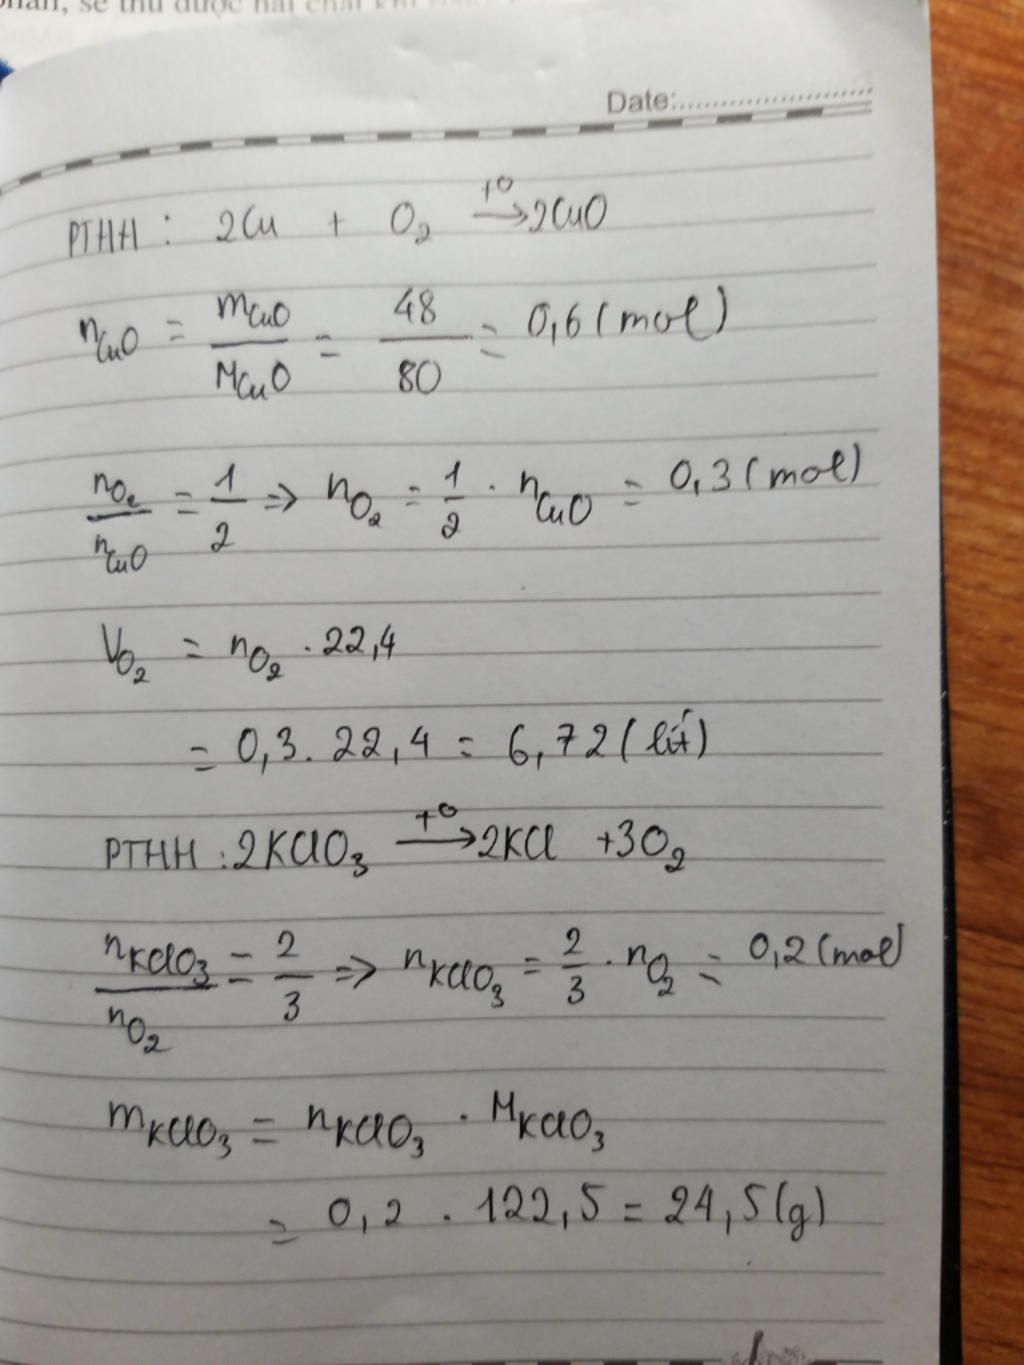 phân, sẽ thu được hai chất khí
Date:
PTHH : 2Cu + O₂ →(t°) 2CuO
nCuO = mCuO / MCuO = 48 / 80 = 0,6 (mol)
nO₂ / nCuO = 1/2 => nO₂ = 1/2 . nCuO = 0,3 (mol)
VO₂ = nO₂ . 22,4
= 0,3 . 22,4 = 6,72 (lít)
PTHH : 2KClO₃ →(t°) 2KCl + 3O₂
nKClO₃ / nO₂ = 2/3 => nKClO₃ = 2/3 . nO₂ = 0,2 (mol)
mKClO₃ = nKClO₃ . MKClO₃
= 0,2 . 122,5 = 24,5 (g)